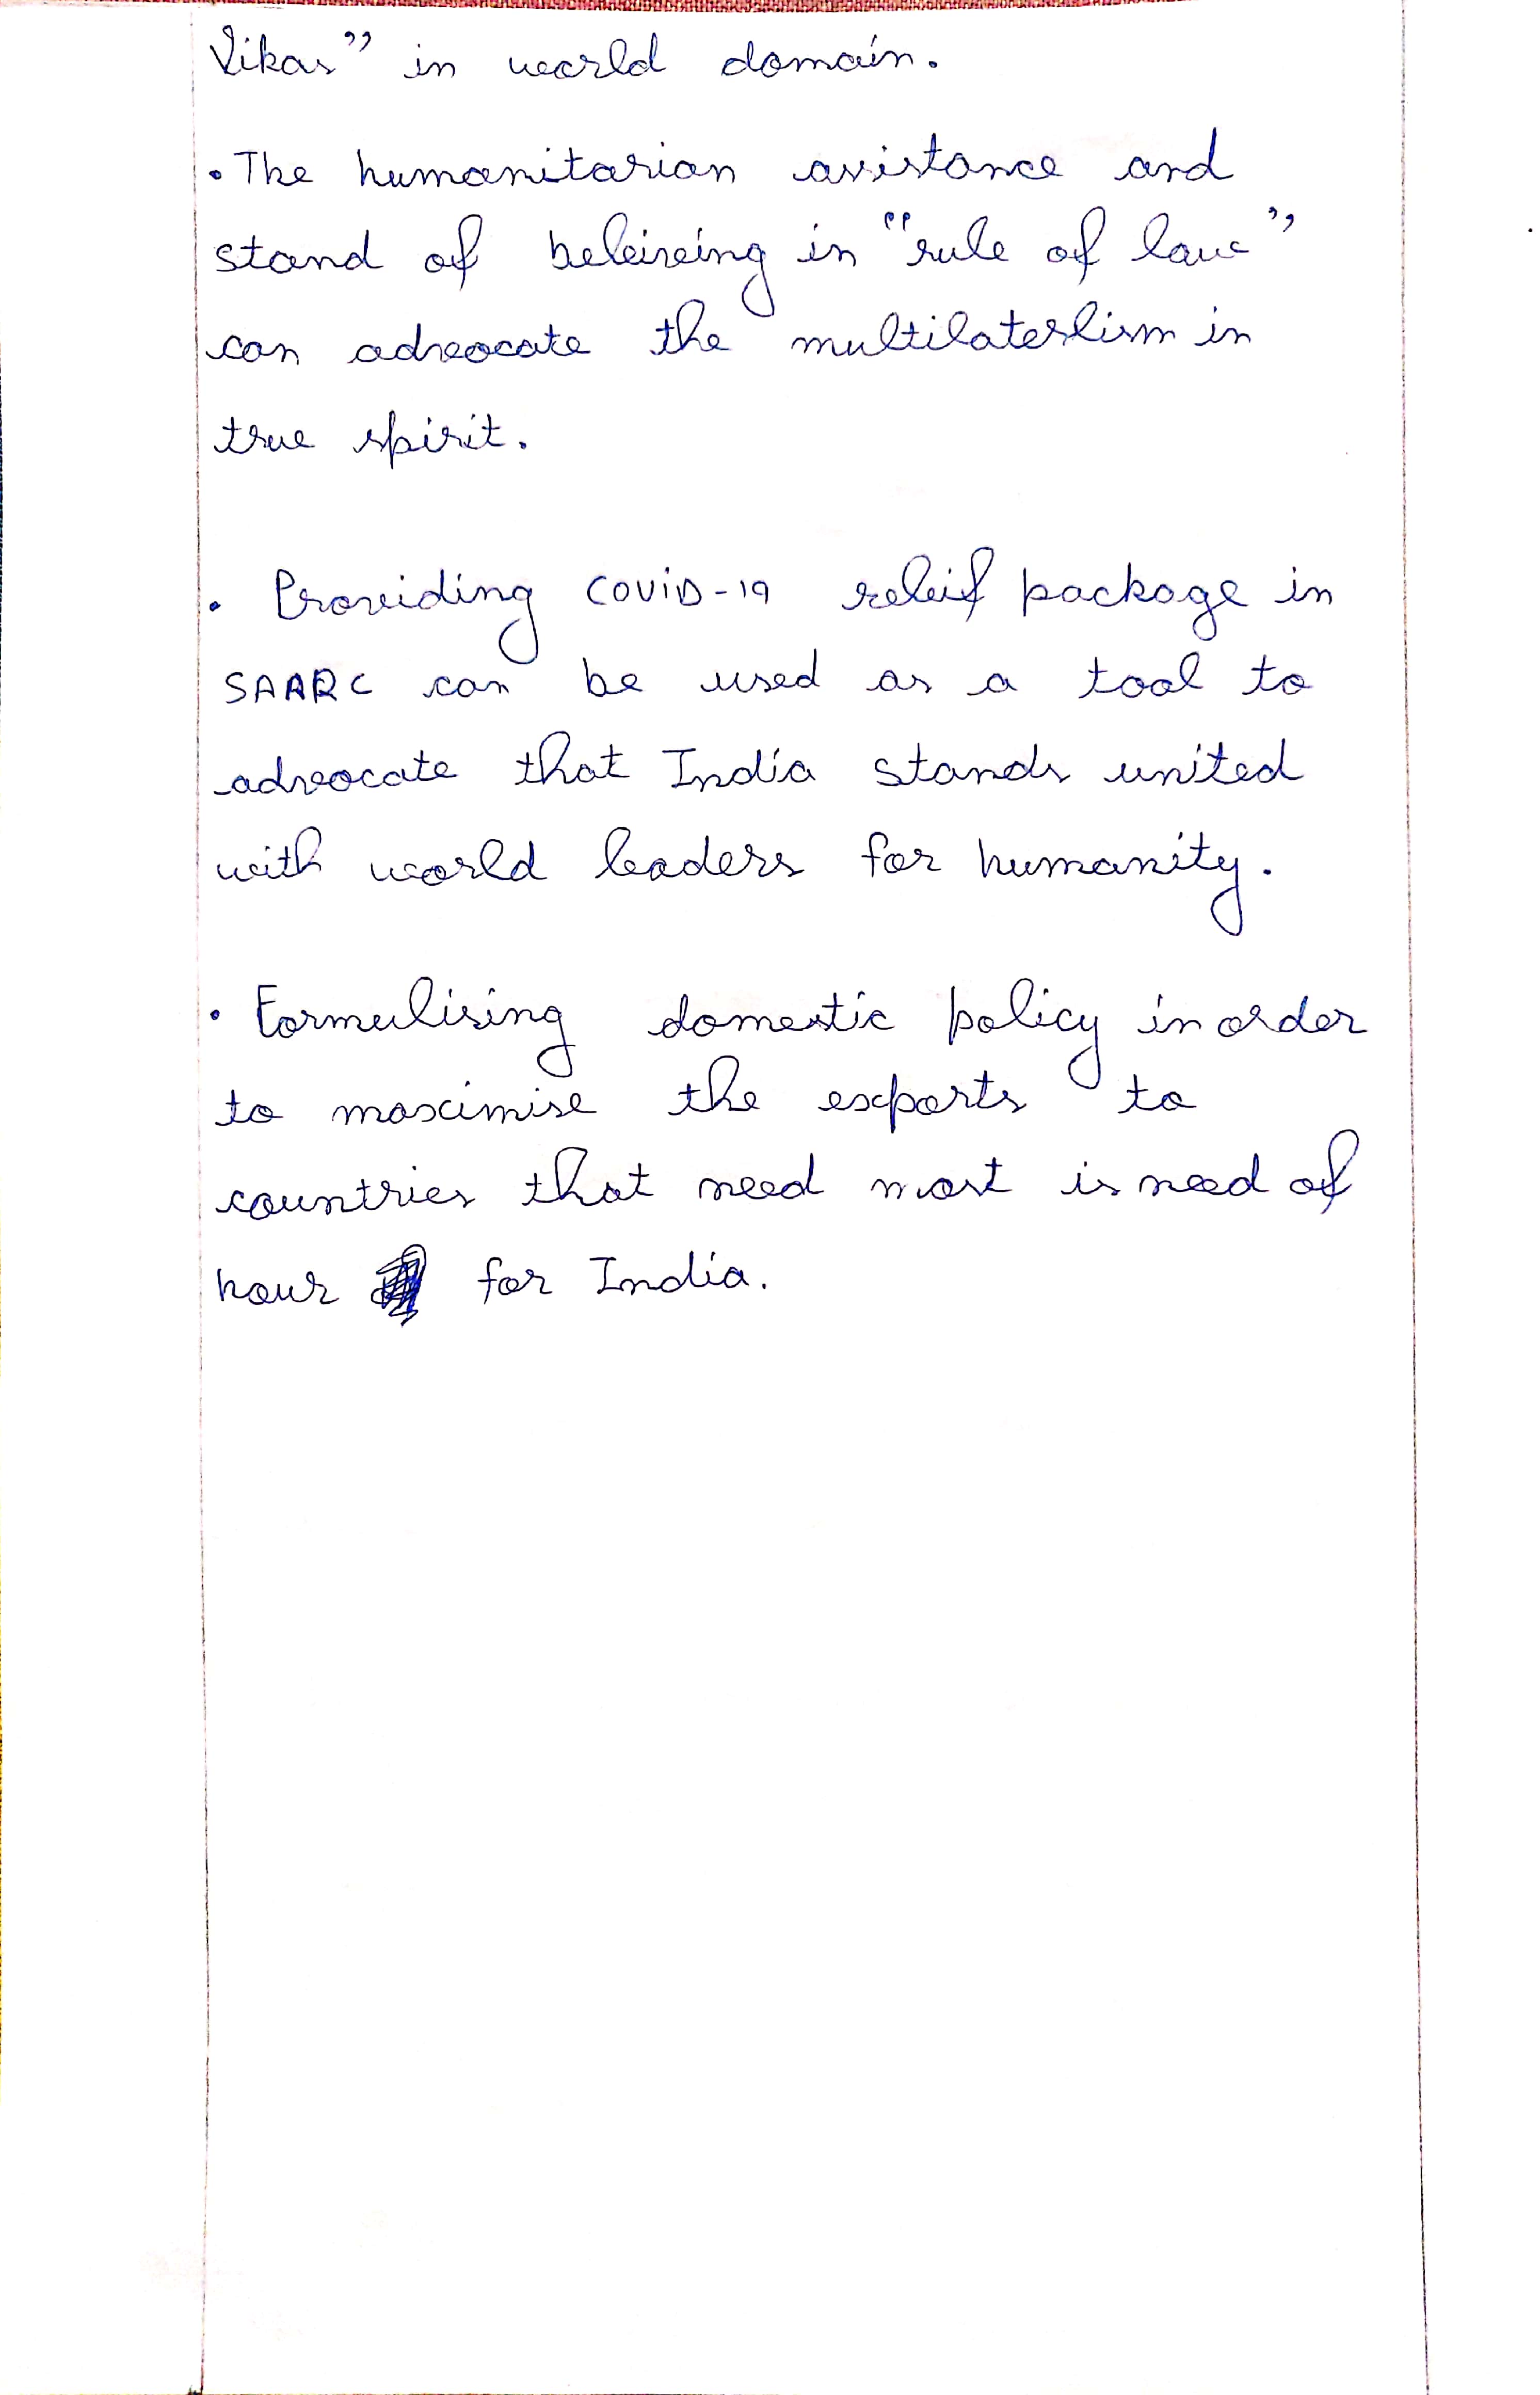 Vikas" in world domain.
• The humanitarian assistance and
stand of beleiveing in "rule of law"
can advocate the multilaterlism in
true spirit.
• Providing COVID-19 releif package in
SAARC can be used as a tool to
advocate that India stands united
with world leaders for humanity.
• Formulising domestic policy in order
to maximise the exports to
countries that need most is need of
hour for India.